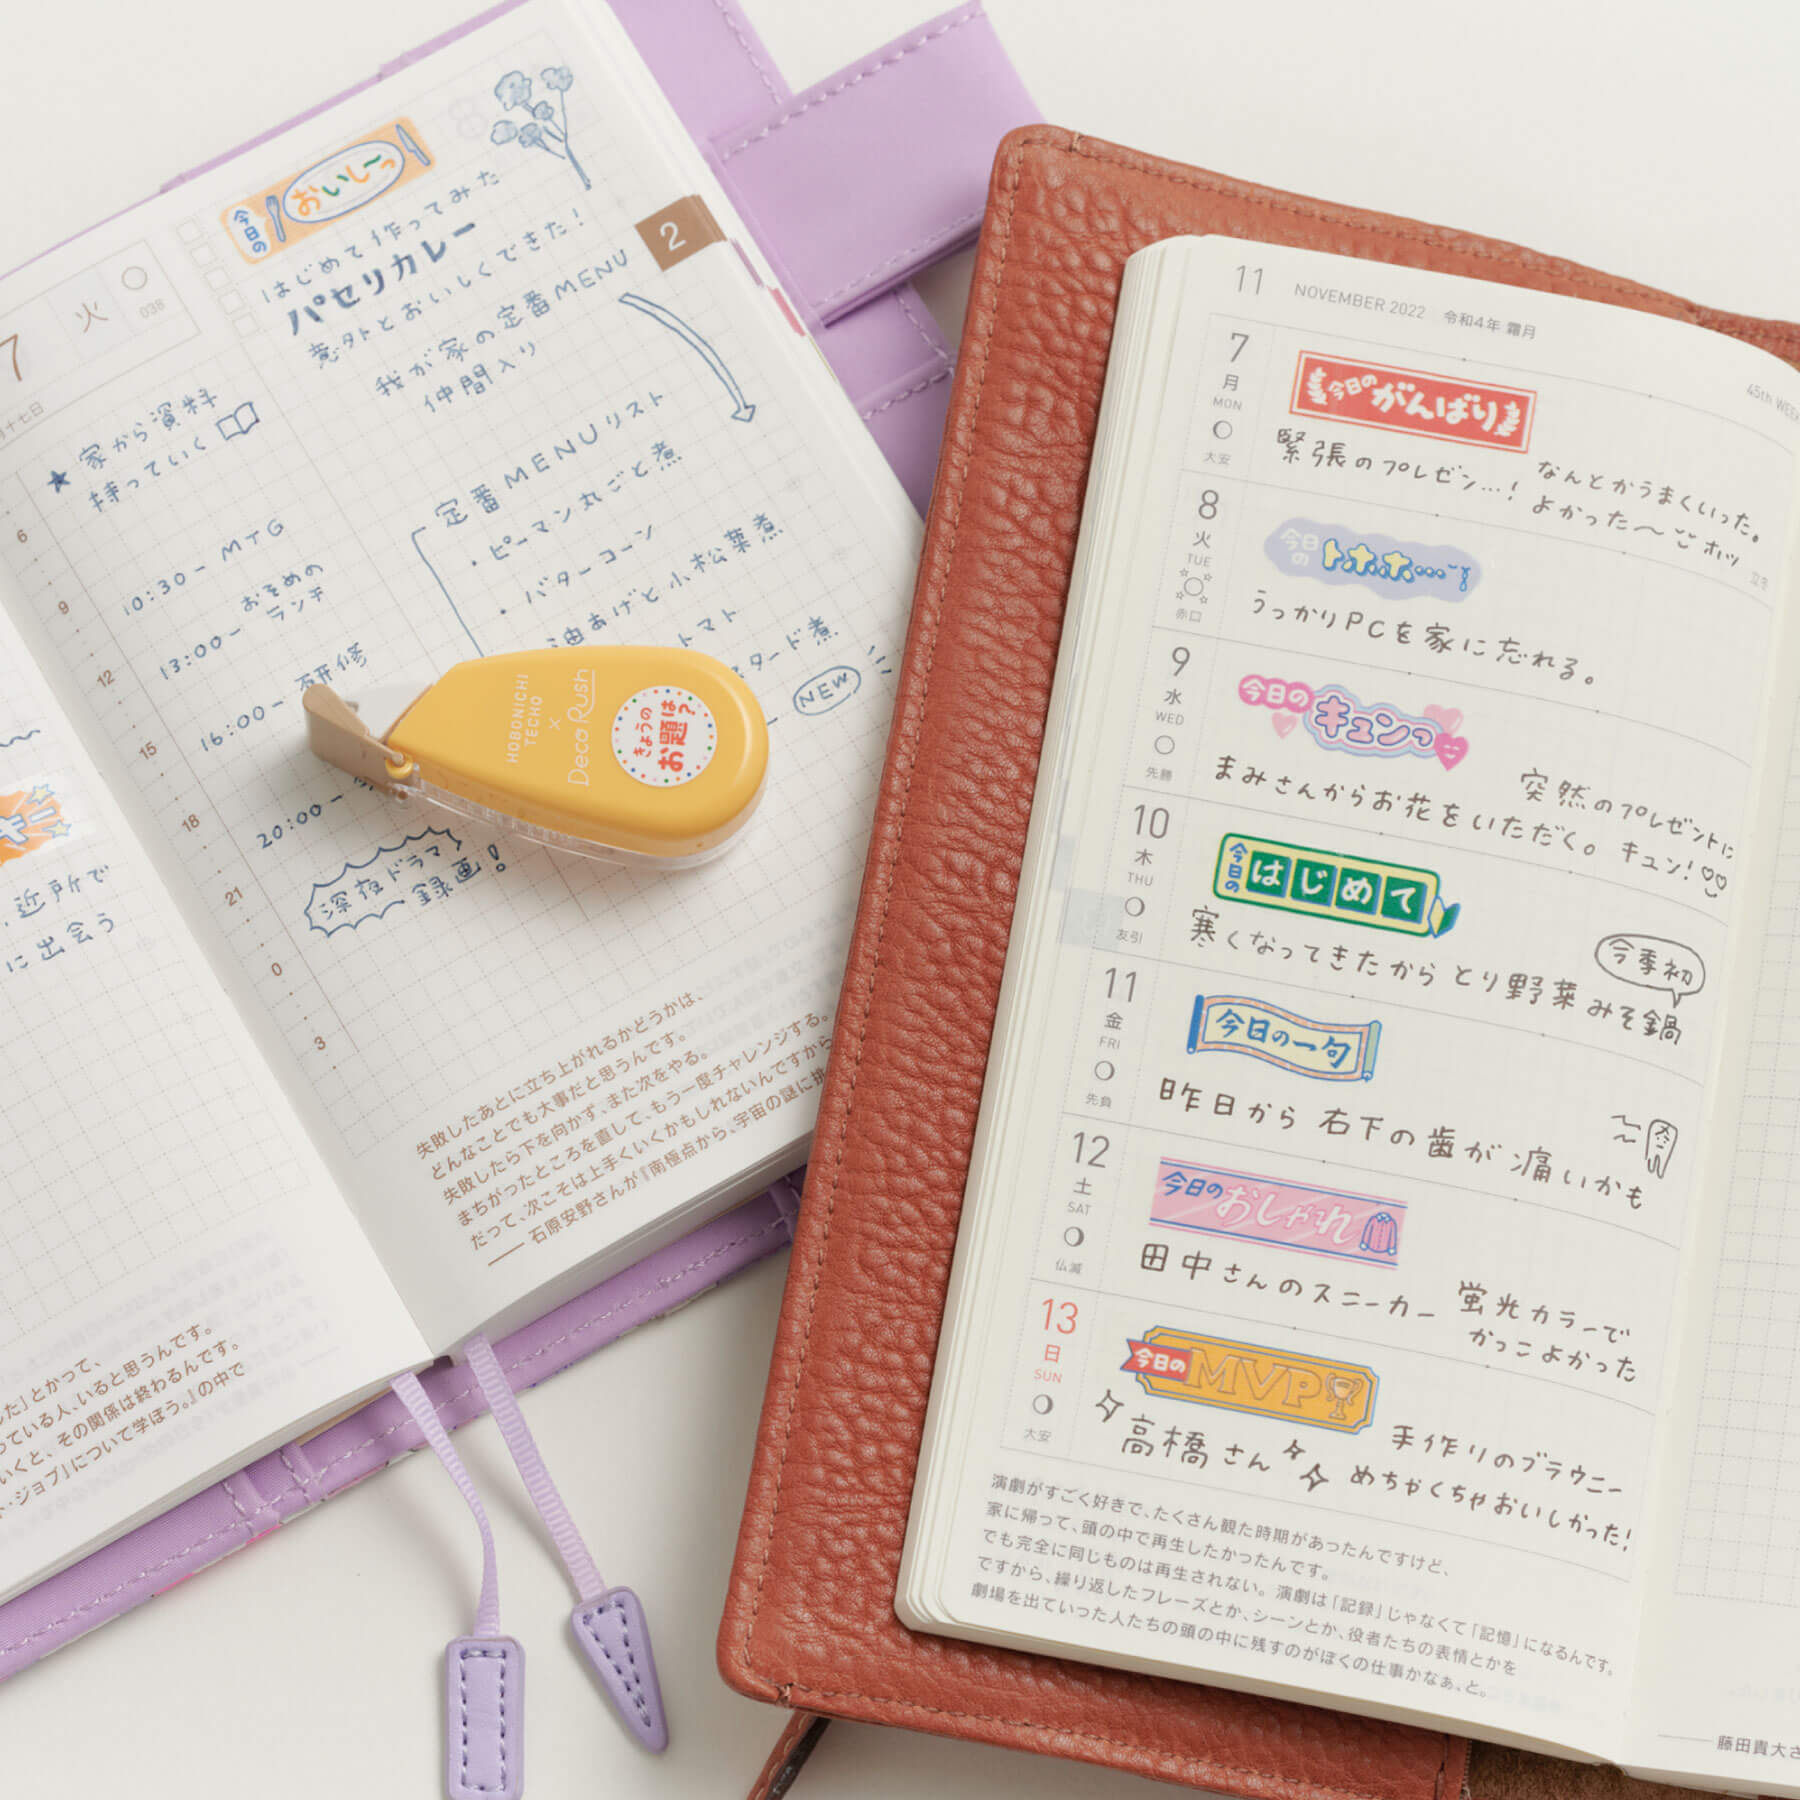 7 火
038
月十七日
★ 家から資料
持っていく
6
9
12
15
18
21
0
3
10:30ー MTG
13:00ー おそめの
ランチ
16:00ー 研修
20:00ー
深夜ドラマ
録画!
今日の おいし〜っ
はじめて作ってみた
パセリカレー
意外とおいしくできた!
我が家の定番MENU
仲間入り
2
定番MENUリスト
・ピーマン丸ごと煮
・バターコーン
油あげと小松菜煮
トマト
スタード煮
NEW
HOBONICHI
TECHO
×
Deco Rush
きょうの
お題は?
失敗したあとに立ち上がれるかどうかは、
どんなことでも大事だと思うんです。
失敗したら下を向かず、また次をやる。
まちがったところを直して、もう一度チャレンジする。
だって、次こそは上手くいくかもしれないんですから
── 石原安野さんが『南極点から、宇宙の謎に挑
キー
、近所で
に出会う
した」とかって、
っている人、いると思うんです。
いくと、その関係は終わるんです。
ト・ジョブ」について学ぼう。』の中で
11 NOVEMBER 2022 令和4年 霜月
45th WEEK
7 月 MON 大安
今日の がんばり
緊張のプレゼン…! なんとかうまくいった。
よかった〜 ホッ
立冬
8 火 TUE 赤口
今日の トホホ…
うっかりPCを家に忘れる。
9 水 WED 先勝
今日の キュンっ
まみさんからお花をいただく。 突然のプレゼントに
キュン!
10 木 THU 友引
今日の はじめて
寒くなってきたから とり野菜みそ鍋
今季初
11 金 FRI 先負
今日の一句
昨日から 右下の歯が 痛いかも
12 土 SAT 仏滅
今日の おしゃれ
田中さんのスニーカー 蛍光カラーで
かっこよかった
13 日 SUN 大安
今日の MVP
高橋さん 手作りのブラウニー
めちゃくちゃおいしかった!
演劇がすごく好きで、たくさん観た時期があったんですけど、
家に帰って、頭の中で再生したかったんです。
でも完全に同じものは再生されない。演劇は「記録」じゃなくて「記憶」になるんです。
ですから、繰り返したフレーズとか、シーンとか、役者たちの表情とかを
劇場を出ていった人たちの頭の中に残すのがぼくの仕事かなぁ、と。
── 藤田貴大さ